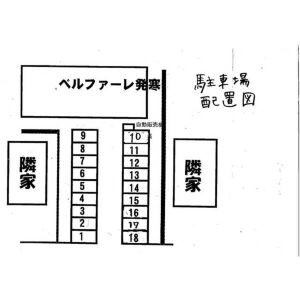 駐車場
配置図
ベルファーレ発寒
自動販売機
9
8
7
6
5
4
3
2
1
10
11
12
13
14
15
16
17
18
隣家
隣家